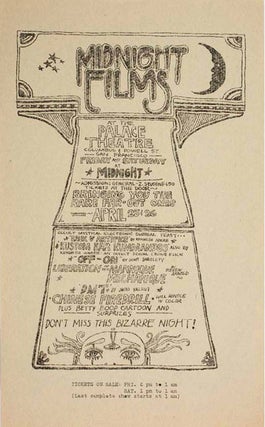 MIDNIGHT
FILMS
AT THE
PALACE
THEATRE
COLUMBUS & POWELL ST.
SAN FRANCISCO
FRIDAY AND SATURDAY
MIDNIGHT
ADMISSION: GENERAL 2. STUDENT 1.50
TICKETS AT THE DOOR
BRINGING YOU THE
RARE FAR-OUT ONES
APRIL 25/26
OCCULT MYSTICAL
KUSTOM KAR KOMMANDOS
OFF-ON BY SCOTT BARTLETT
LIBERATION
CHINESE FIREBALL
PLUS BETTY BOOP CARTOON AND
SURPRISES
DON'T MISS THIS BIZARRE NIGHT!
TICKETS ON SALE: FRI. 6 pm to 1 am
SAT. 1 pm to 1 am
(Last complete show starts at 1 am)